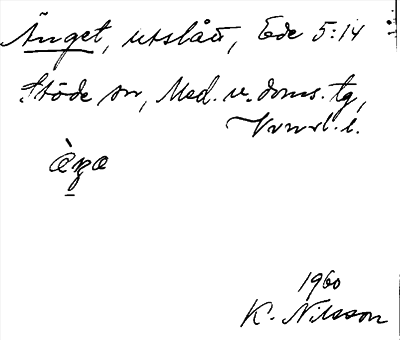 Änget, utslått, Ede 5:14
Stöde sn, Med. v. doms. tg,
Vrnrl. l.
1960
K. Nilsson